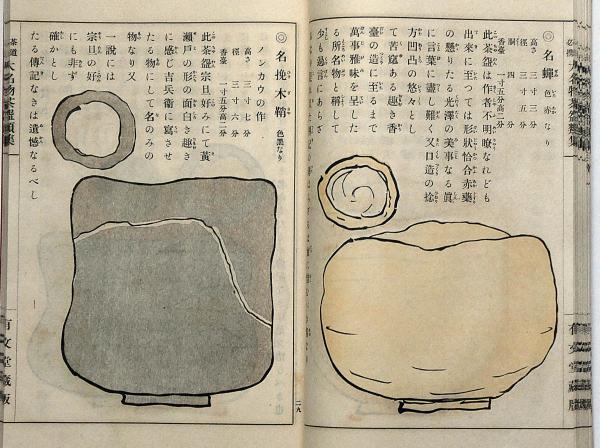 ◎名蟬 色赤なり
高さ 三寸三分
徑 三寸五分
胴 四寸
香臺 一寸五分高二分
此茶盌は作者不明瞭なれども
出來に至つては形狀恰合赤藥
の懸りたる光澤の美事なる眞
に言葉に盡し難く又口造の捻
方凹凸の悠々とし
て苦窳ある趣き香
臺の造に至るまで
萬事雅味を呈した
る所名物と稱して
少も過言にあらざ
◎名挽木鞘 色黑なり
ノンカウの作
高さ 三寸七分
徑 三寸六分
香臺 一寸五分高二分
此茶盌宗旦好みにて黃
瀨戶の形の面白き趣き
に感じ吉兵衞に寫させ
たる物にして名のみの
物なり又
一說には
宗旦の好
にも非ず
確かとし
たる傳記なきは遺憾なるべし
二九
茶道 大名物茶盌類集
有文堂藏版